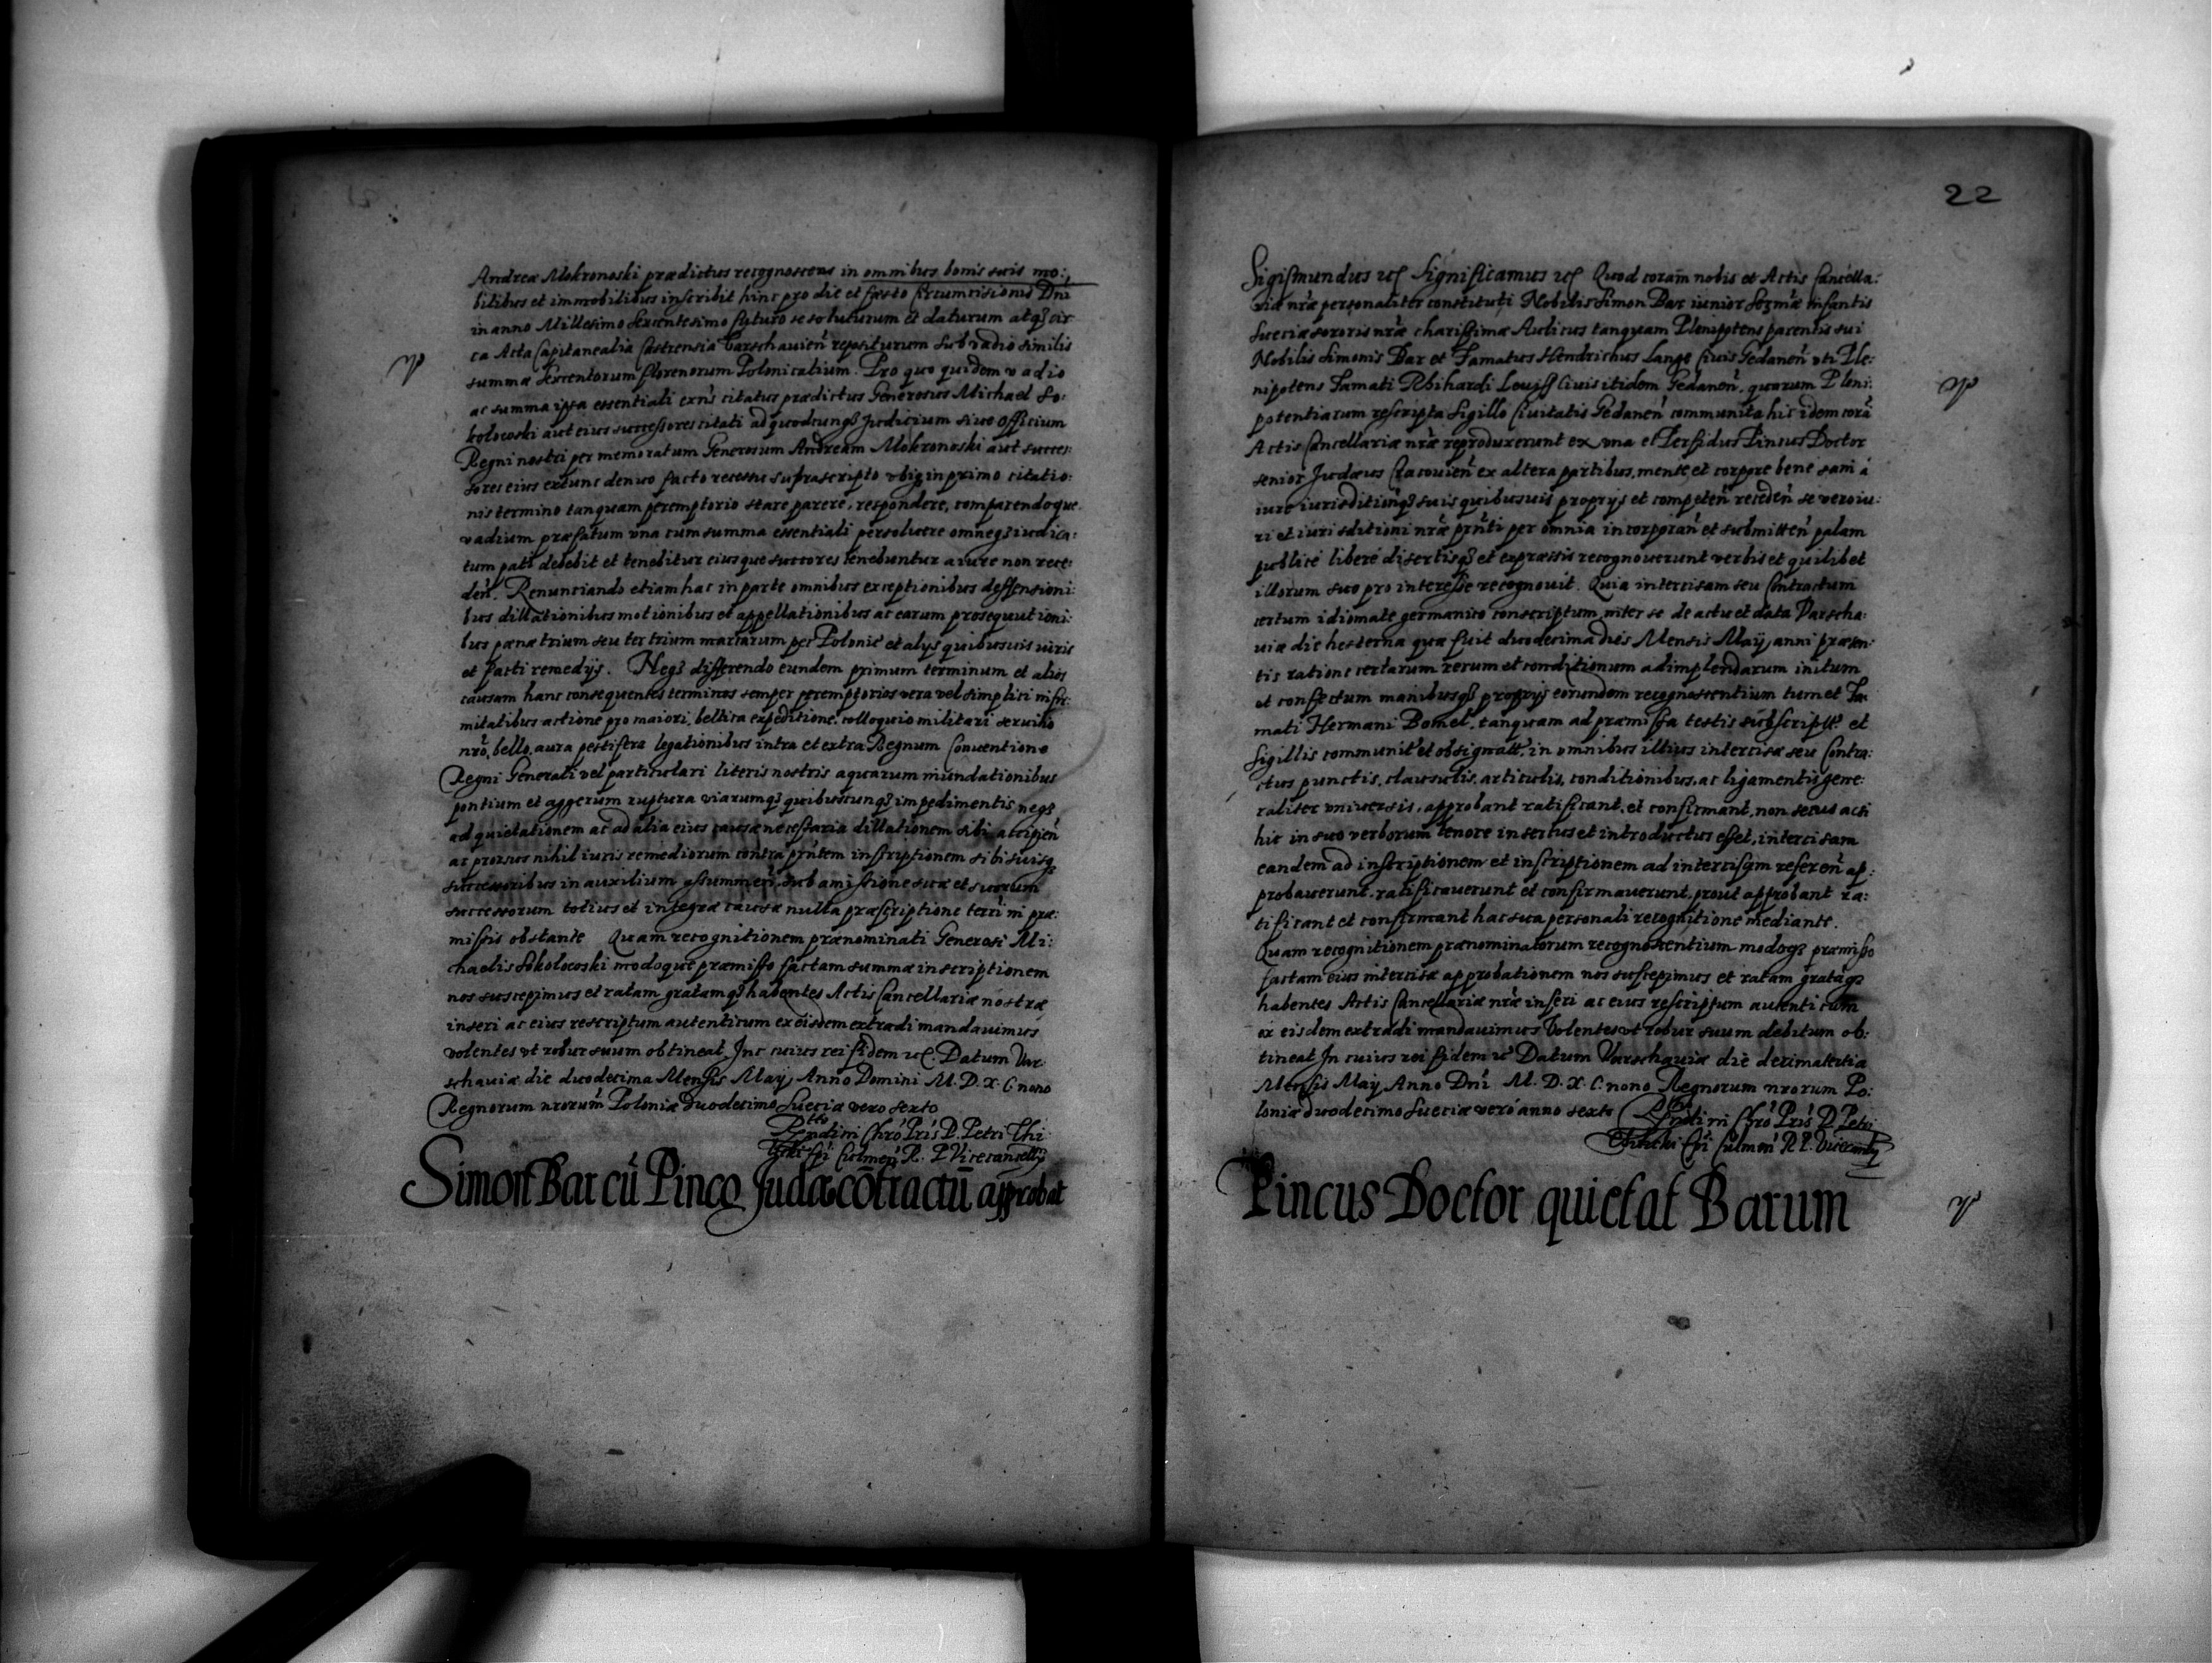 Andreæ Mokronoski prædictus recognoscens in omnibus bonis suis mo:
bilibus et immobilibus inscribit hinc pro die et festo Circumcisionis Dni
in anno Millesimo sexcentesimo futuro se soluturum et daturum atq3 cir
ca Acta Capitanealia Castrensia Varschavien̄ repositurum sub vadio similis
summæ sexcentorum florenorum Polonicalium. Pro quo quidem vadio
ac summa ipsa essentiali exn̄s citatus prædictus Generosus Michael So:
kolowski aut eius successores citati ad quodcunq3 Judicium sive Officium
Regni nostri per memoratum Generosum Andream Mokronoski aut succes:
sores eius extunc denuo facto recessu suprascripto ubiq3 in primo citatio:
nis termino tanquam peremptorio stare parere, respondere, comparendoque
vadium præfatum vna cum summa essentiali persolvere omneq3 iudica:
tum pati debebit et tenebitur eiusque succores tenebuntur a iure non rece:
den̄. Renunciando etiam hac in parte omnibus exceptionibus deffensioni:
bus dillationibus motionibus et appellationibus ac earum prosequutioni:
bus pænæ trium seu ter trium marcarum per Polonic et alys quibusuis iuris
et facti remedijs. Neq3 differendo eundem primum terminum et alios
causam hanc consequentes terminos semper peremptorios vera vel simplici infir:
mitatibus actione pro maiori, bellica expeditione, colloquio militari servitio
nrō, bello, aura pestifera legationibus intra et extra Regnum Conventione
Regni Generali vel particulari literis nostris aquarum inundationibus
pontium et aggerum ruptura viarumq3 quibuscunq3 impedimentis neq3
ad quietationem ac ad alia eius causæ necessaria dillationem sibi accipien̄
ac prorsus nihil iuris remediorum contra prn̄tem inscriptionem sibi suisq3
successoribus in auxilium assummen̄, sub amissione suæ et suorum
successorum totius et integræ causæ nulla præscriptione terr̄i in præ:
missis obstante Quam recognitionem prænominati Generosi Mi:
chaelis Sokolowski modoque præmisso factam summæ inscriptionem
nos suscepimus et ratam gratamq3 habentes Actis Cancellariæ nostræ
inseri ac eius rescriptum autenticum ex eisdem extradi mandauimus
volentes vt robur suum obtineat. Inc cuius rei fidem etc. Datum Var:
schauiæ die duodecima Mensis Maij Anno Domini M. D. X. C. nono
Regnorum nrorum Poloniæ duodecimo Sueciæ vero sexto
Rndi in Chrō Pris D. Petri Thi
licki Epi Culmen̄ R. P. Vicecancellij
Simon Bar cū Pinco Judæo cōtractū approbat
22
Sigismundus etc Significamus etc Quod coram nobis et Actis Cancella:
riæ nræ personaliter constituti Nobilis Simon Bar iunior Serm̄æ Infantis
Sueciæ sororis nræ charissimæ Aulicus tanquam Plenipotens parentis sui
Nobilis Simonis Bar et Famatus Hendrichus Lange Ciuis Gedanen̄ vti Ple:
nipotens Famati Ciuis itidem Gedanen̄, quorum Pleni:
potentiarum rescripta Sigillo Ciuitatis Gedanen̄ communita hic idem corā
Actis Cancellariæ nræ reproduxerunt ex vna et Perfidus Pinsus Doctor
senior Judæus Cracouien̄ ex altera partibus, mente et corpore bene sani á
iure iurisditioniq3 suis quibusuis proprys et competen̄ receden̄ se vero iu:
ri et iuri sditioni nræ prn̄ti per omnia incorporan̄ et submitten̄ palam
publicé liberé disertisq3 et expressis recognouerunt verbis et quilibet
illorum suo pro interesse recognouit. Quia intercisam seu Contractum
certum idiomate germanico conscriptum, inter se de actu et data Varscha:
uiæ die hesterna quæ fuit duodecima dies Mensis Maij anni præsen:
tis ratione certarum rerum et conditionum adimplendarum initum
et confectum manibusq3 proprys eorundem recognoscentium tum et Fa:
mati Hermani Bomel, tanquam ad præmissa testis subscript̄. et
Sigillis communit̄ et obsignat̄, in omnibus illius intercisæ seu Contra:
ctus punctis, clausulis, articulis, conditionibus, ac ligamentis gene:
raliter vniuersis, approbant ratificant, et confirmant, non secus acsi
hic in suo verborum tenore insertus et introductus esset, intercisam
eandem ad inscriptionem et inscriptionem ad intercisam referen̄ ap:
probauerunt, ratificauerunt et confirmauerunt, prout approbant ra:
tificant et confirmant hac sua personali recognitione mediante.
Quam recognitionem prænominatorum recognoscentium modoq3 præmisso
factam eius intercisæ approbationem nos suscepimus et ratam gratāq3
habentes Actis Cancellariæ nræ inseri ac eius rescriptum autenticum
ex eisdem extraddi mandauimus Volentes vt robur suum debitum ob:
tineat In cuius rei fidem etc Datum Varschauiæ die decimatertia
Mensis Maij Anno Dni M. D. X. C. nono Regnorum nrorum Po:
loniæ duodecimo Sueciæ veró anno sexto
Rndi in Chrō Pris D. Petri
Tilicki Epi Culmen̄ R. P. Vicecancellij
Pincus Doctor quietat Barum